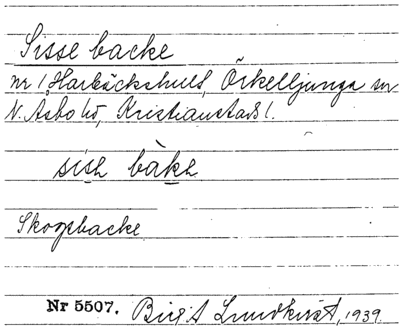 Sisse backe
nr 1 Harbäckshult, Örkelljunga sn
N. Åsbo hd, Kristianstads l.
sisə bàkə
Skogsbacke
Nr 5507. Birgit Lundkvist, 1939.